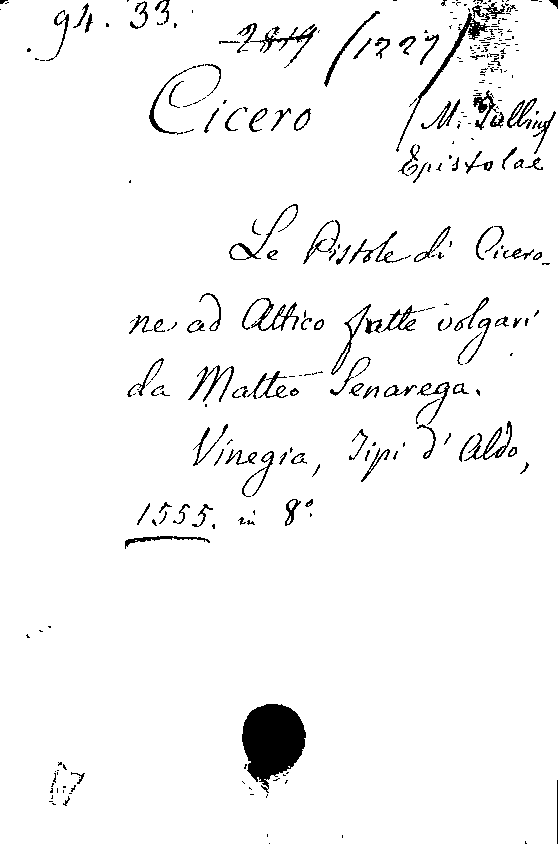 94. 33.
2819 (1227)
Cicero (M. Tullius
Epistolae
Le Pistole di Cicero-
ne ad Attico fatte volgari
da Matteo Senarega.
Vinegia, Tipi d'Aldo,
1555. in 8°.